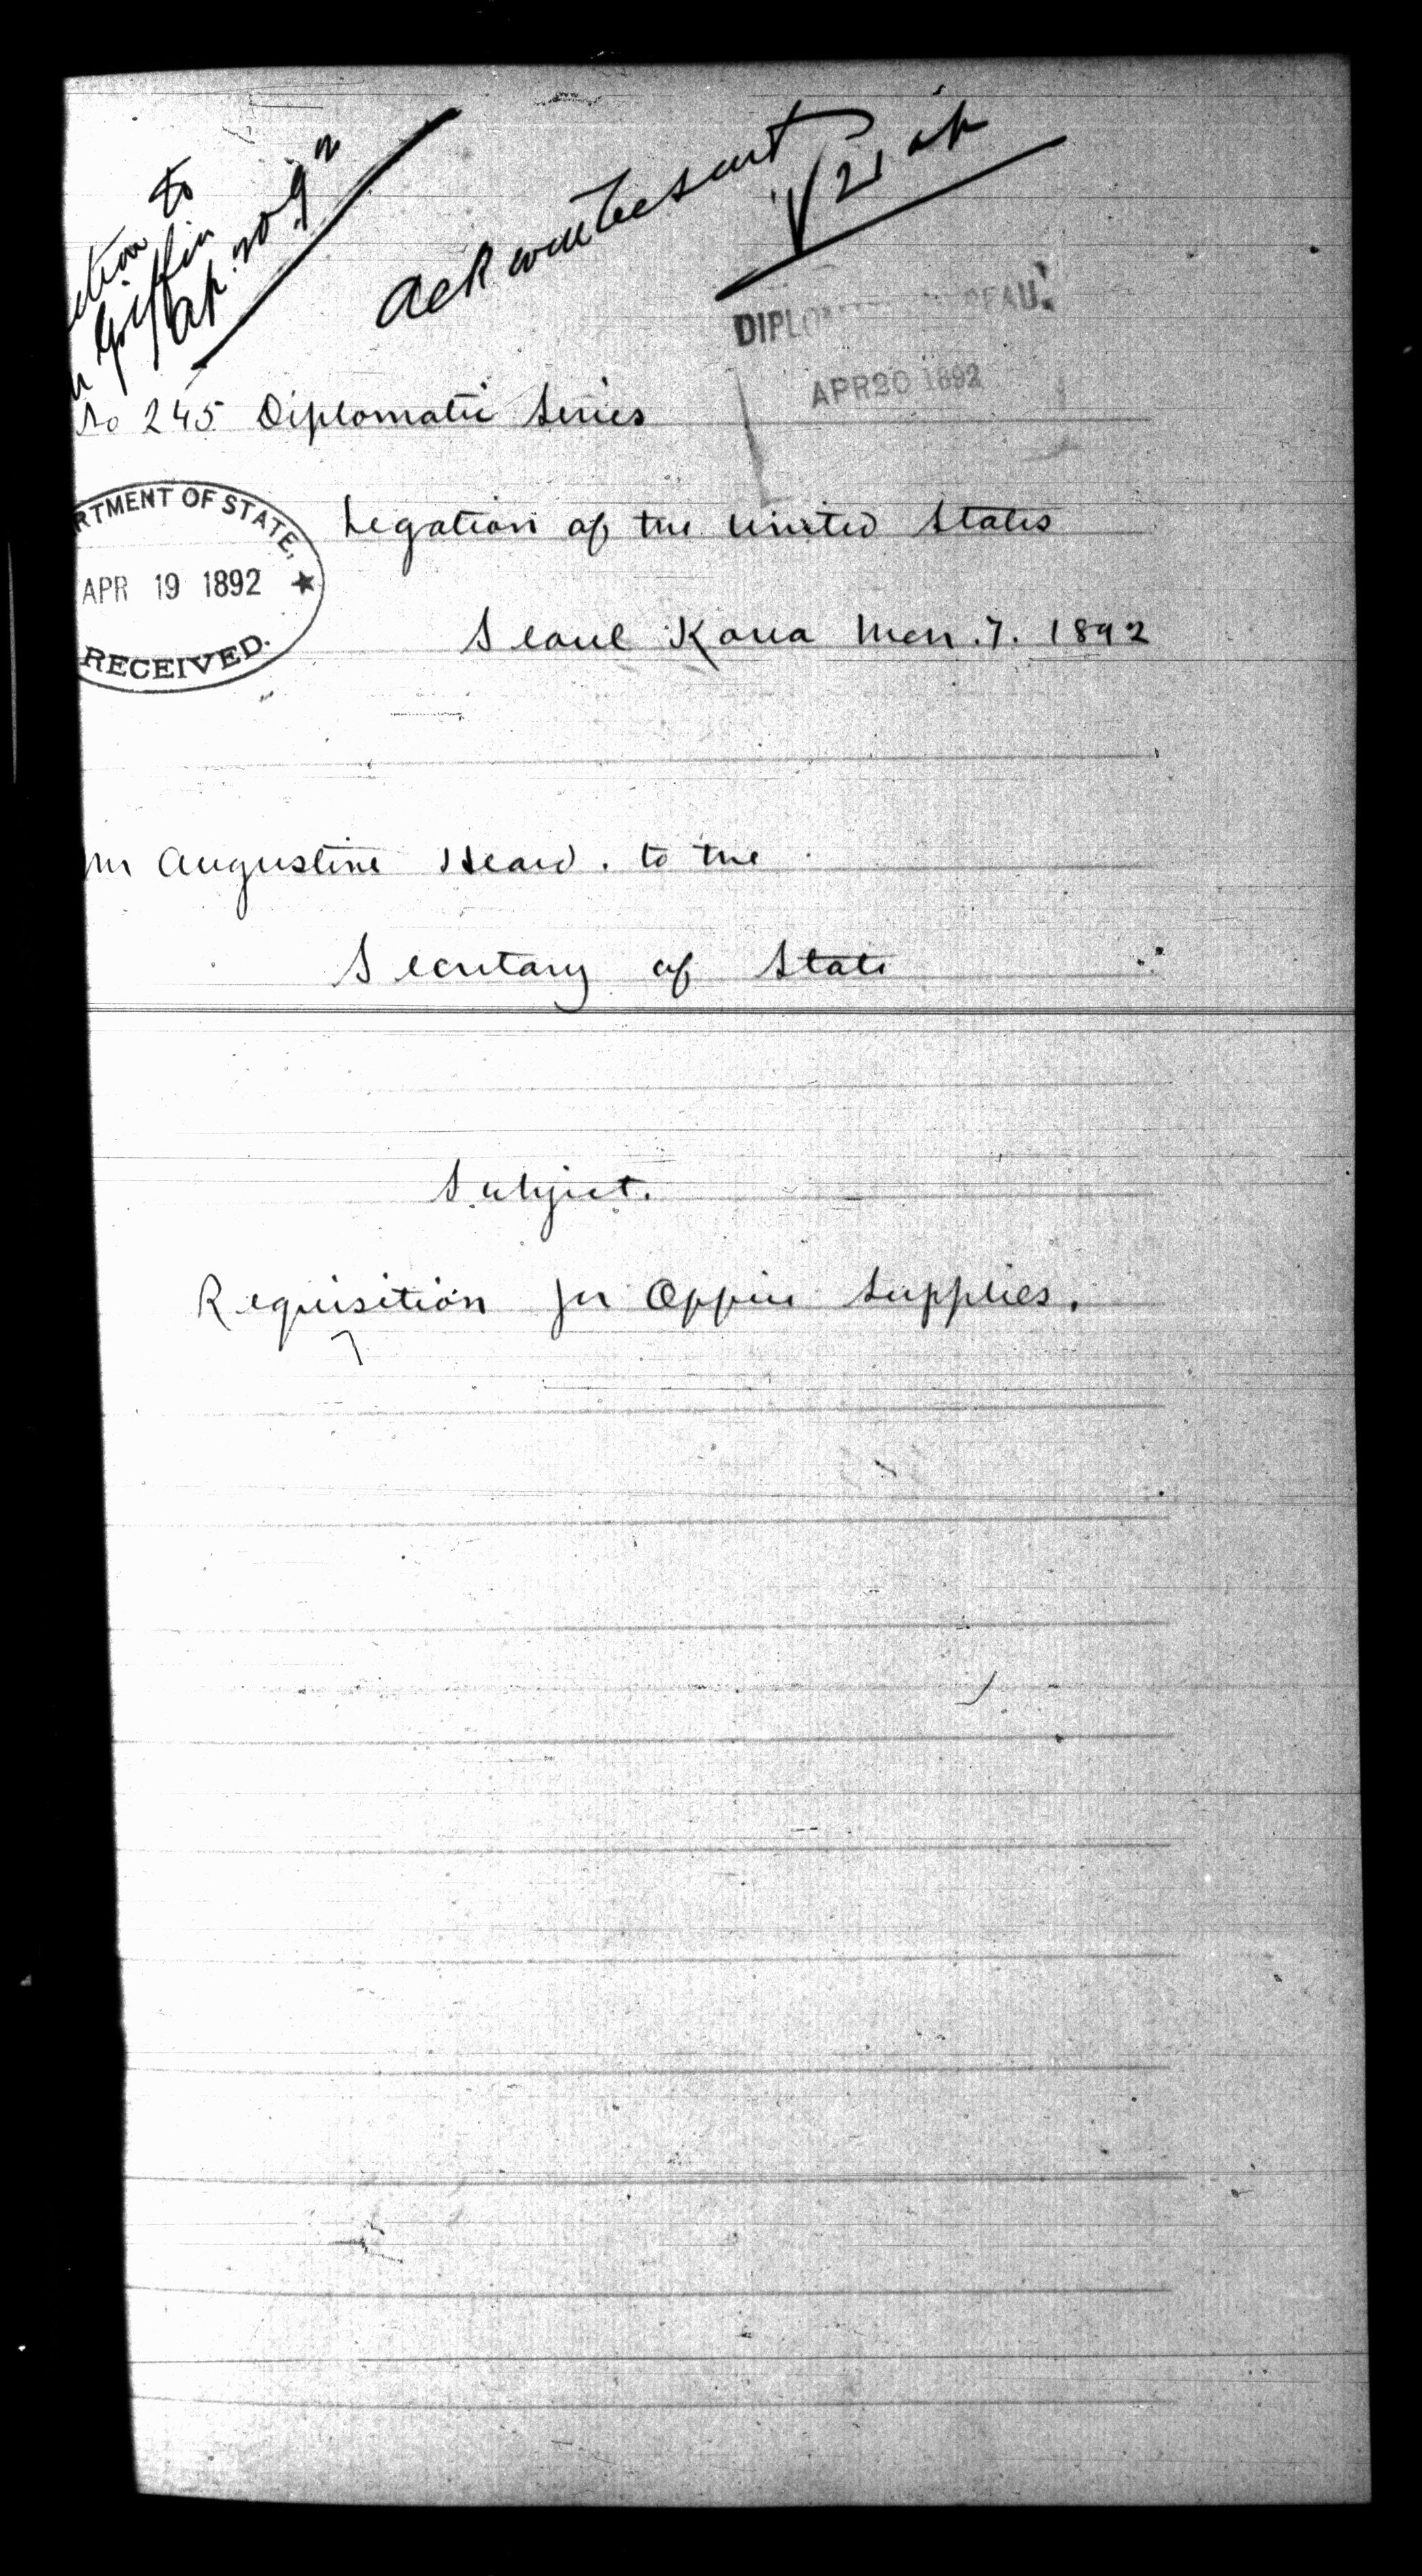 to
Griffin
Ap. 20. 92
Ack when sent
21 Ap
DIPLOM REAU.
APR 20 1892
No 245 Diplomatic Series
RTMENT OF STATE,
APR 19 1892
RECEIVED.
Legation of the United States
Seoul Korea Mch. 7. 1892
Mr Augustine Heard. to the
Secretary of State
Subject.
Requisition for Office Supplies.